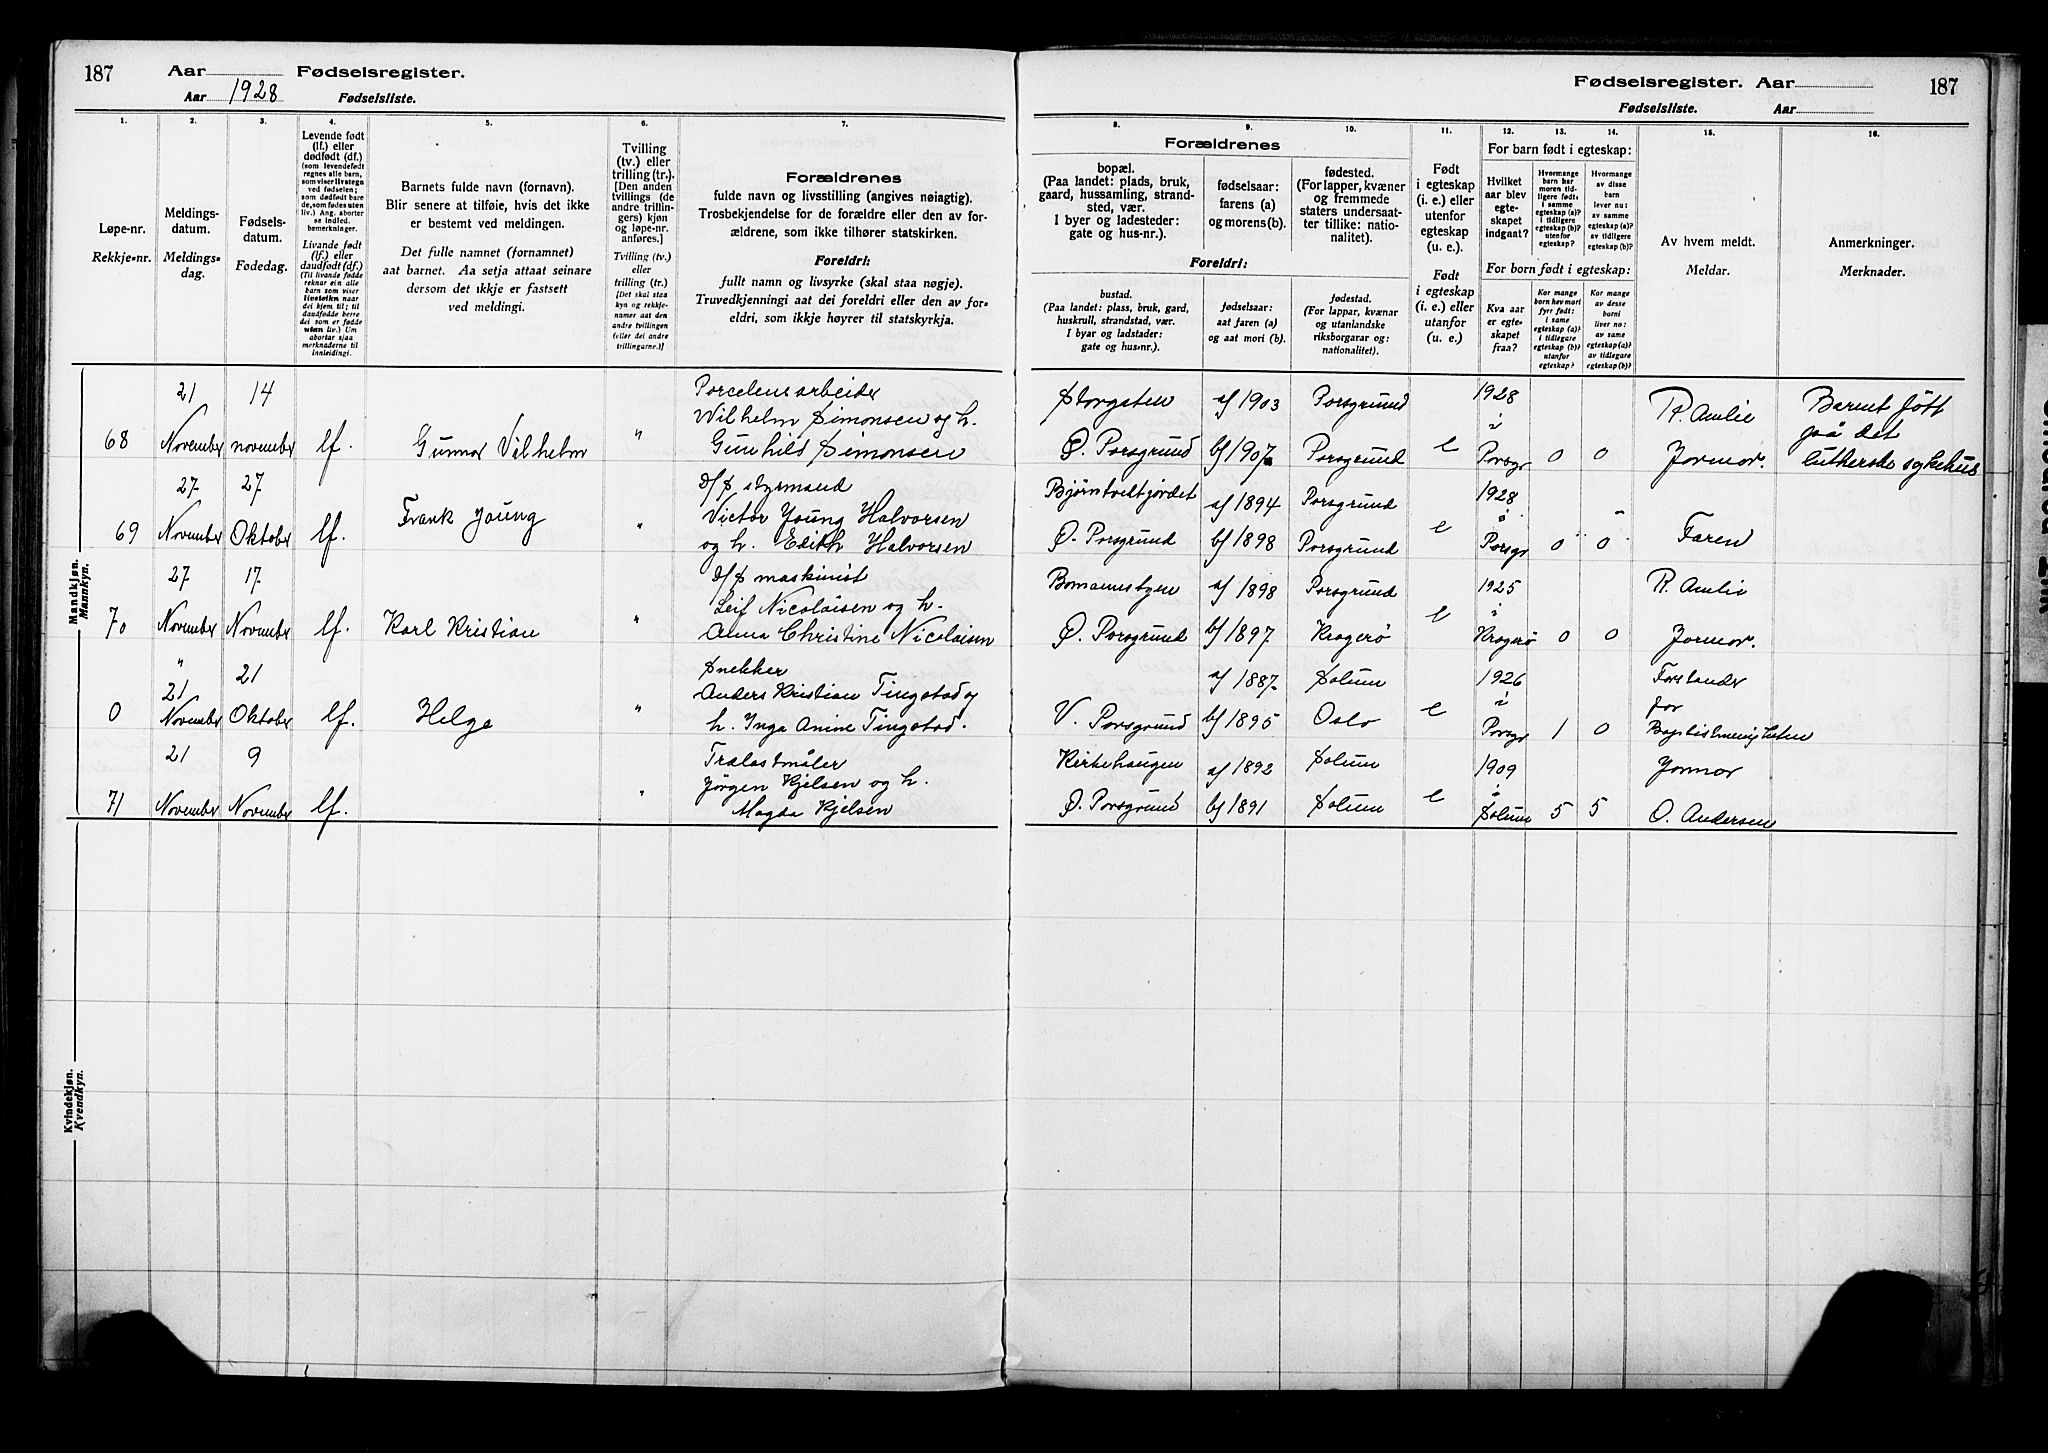 187 Aar Fødselsregister.
Aar 1928 Fødselsliste.
1. 2. 3. 4. 5. 6. 7.
Løpe-nr.
Rekkje-nr.
Meldings-
datum.
Meldings-
dag.
Fødsels-
datum.
Fødedag.
Levende født
(lf.) eller
dødfødt (df.)
(som levendefødt
regnes alle barn,
som viser livstegn
ved fødselen;
som dødfødt bare
de, som fødes uten
liv.) Ang. aborter
se indled.
bemerkninger.
Livande født
(lf.) eller
daudfødt (df.)
(Til livande fødde
reknar ein alle
barn som viser
livsteikn naar
dei kjem til; til
daudfødde berre
dei som er fødde
utan liv.) Um
abortar sjaa
merknaderne til
innleidingi.
Barnets fulde navn (fornavn).
Blir senere at tilføie, hvis det ikke
er bestemt ved meldingen.
Det fulle namnet (fornamnet)
aat barnet. Aa setja attaat seinare
dersom det ikkje er fastsett
ved meldingi.
Tvilling
(tv.) eller
trilling (tr.).
[Den anden
tvillings (de
andre trillin-
gers) kjøn
og løpe-nr.
anføres.]
Tvilling (tv.)
eller
trilling (tr.)
[Det skal staa
kyn og rekkje-
numer aat den
andre tvillingen
(eller dei andre
trillingarne.)]
Forældrenes
fulde navn og livsstilling (angives nøiagtig).
Trosbekjendelse for de forældre eller den av for-
ældrene, som ikke tilhører statskirken.
Foreldri:
fullt namn og livsyrke (skal staa nøgje).
Truvedkjenningi aat dei foreldri eller den av for-
eldri, som ikkje høyrer til statskyrkja.
Mandkjøn.
Mannkyn.
68 21 November 14 november lf. Gunnar Vilhelm "
Porcelensarbeider
Wilhelm Simonsen og h.
Gunhild Simonsen
69 27 November 27 Oktober lf. Frank Young "
D/S styrmand
Victor Young Halvorsen
og h. Edith Halvorsen
70 27 November 17 November lf. Karl Kristian "
D/S maskinist
Leif Nicolaisen og h.
Alma Christine Nicolaisen
0 " 21 November 21 Oktober lf. Helge "
Snekker
Anders Kristian Tingstad og
h. Inga Anine Tingstad.
71 21 November 9 November lf. "
Trælastmåler
Jørgen Kjelsen og h.
Magda Kjelsen
Kvindekjøn.
Kvendkyn.
Fødselsregister. Aar 187
Fødselsliste. Aar
8. 9. 10. 11. 12. 13. 14. 15. 16.
Forældrenes
bopæl.
(Paa landet: plads, bruk,
gaard, hussamling, strand-
sted, vær.
I byer og ladesteder:
gate og hus-nr.).
fødselsaar:
farens (a)
og morens (b).
fødested.
(For lapper, kvæner
og fremmede
staters undersaat-
ter tillike: natio-
nalitet).
Foreldri:
bustad.
(Paa landet: plass, bruk, gard,
huskrull, strandstad, vær.
I byar og ladstader:
gate og hus-nr.).
fødselsaar:
aat faren (a)
og aat mori (b).
fødestad.
(For lappar, kvænar
og utanlandske
riksborgarar og:
nationalitet).
Født
i egteskap
(i. e.) eller
utenfor
egteskap
(u. e.).
Født
i egteskap
(i. e.) eller
utanfor
(u. e.)
For barn født i egteskap:
Hvilket
aar blev
egte-
skapet
indgaat?
Hvormange
barn har
moren tid-
ligere født:
i samme
egteskap (a)?
i tidligere
egteskap (b)?
utenfor
egteskap?
Hvormange
av disse
barn
lever nu:
av samme
egteskap (a)?
av tidligere
egteskap (b)?
For born født i egteskap:
Kva aar
er egte-
skapet
fraa?
Kor mange
born hev mori
fyrr født:
i same
egteskap (a)?
i tidlegare
egteskap (b)?
utanfor
egteskap?
Kor mange
av desse
borni
liver no:
av same
egteskap (a)?
av tidlegare
egteskap (b)?
Av hvem meldt.
Meldar.
Anmerkninger.
Merknader.
Storgaten af 1903 Porsgrund 1928 R. Amlie Barnet født
i på det
Ø. Porsgrund bf 1907 Porsgrund e Porsgr 0 0 Jormor. lutherske sykehus
Bjørntvedtjordet af 1894 Porsgrund 1928
i
Ø. Porsgrund bf 1898 Porsgrund e Porsgr 0 0 Faren
af 1898 Porsgrund 1925 R. Amlie
i
Ø. Porsgrund bf 1897 Kragerø e Kragerø 0 0 Jormor.
af 1887 Solum 1926 Forstander
i for
V. Porsgrund bf 1895 Oslo e Porsgr 1 0 Baptistmenigheten
Kirkehaugen af 1892 Solum 1909 Jormor
i
Ø. Porsgrund bf 1891 Solum e Solum 5 5 O. Andersen